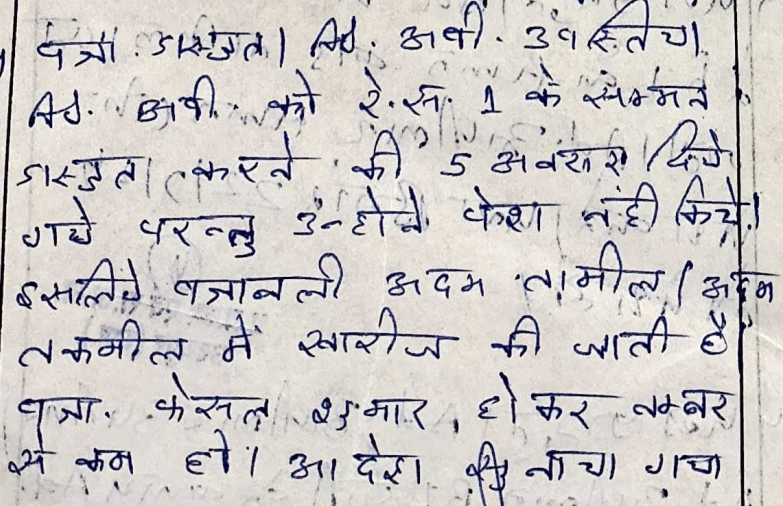 पत्रा. प्रस्तुत। Ad. अपी. उपस्थित।
Ad. अपी. को रे.सं. 1 के सम्मन
प्रस्तुत करने की 5 अवसर दिये
गये परन्तु उन्होने पेश नही किये।
इसलिये पत्रावली अदम तामील / अदम
तकमील में खारीज की जाती है
पत्रा. फैसल शुमार होकर नम्बर
से कम हो। आदेश सुनाया गया